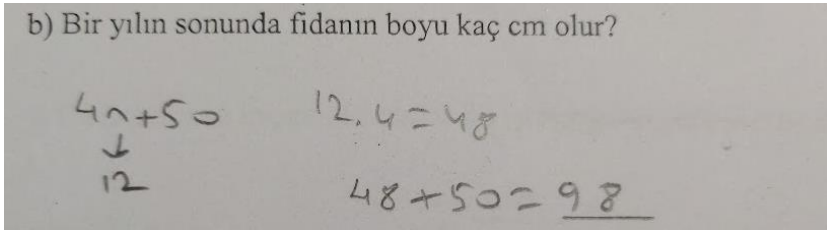 b) Bir yılın sonunda fidanın boyu kaç cm olur?
4n+50 12.4=48
↓
12
48+50=98